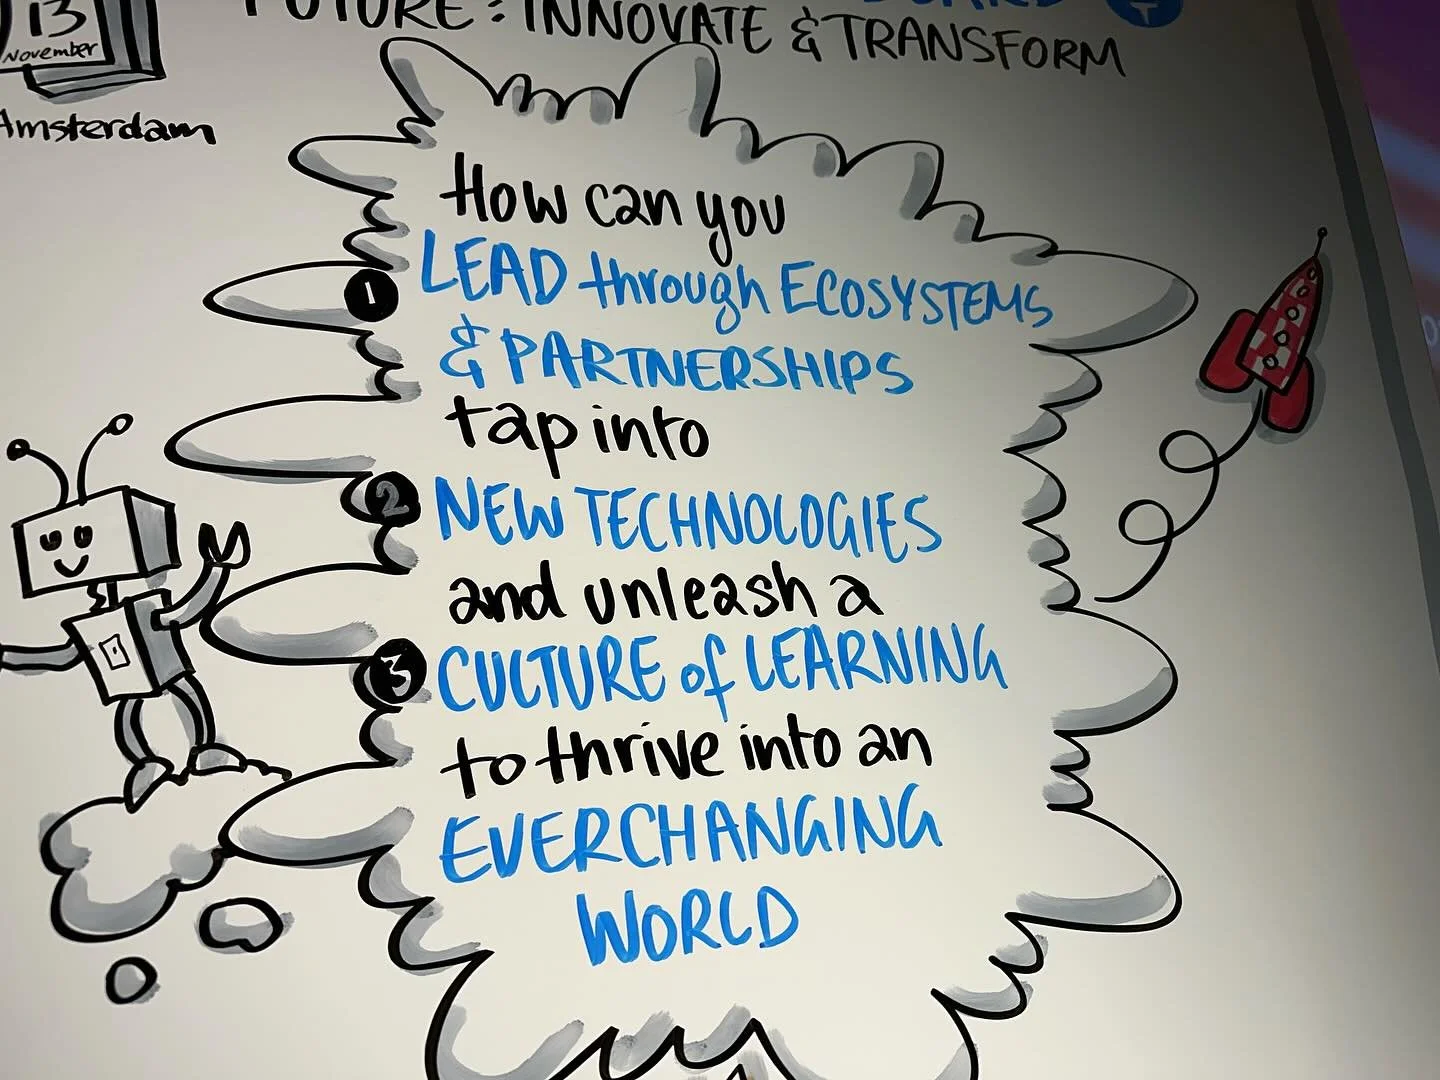 13
November
Amsterdam
FUTURE : INNOVATE & TRANSFORM
How can you
1 LEAD through ECOSYSTEMS
& PARTNERSHIPS
tap into
2 NEW TECHNOLOGIES
and unleash a
3 CULTURE of LEARNING
to thrive into an
EVERCHANGING
WORLD